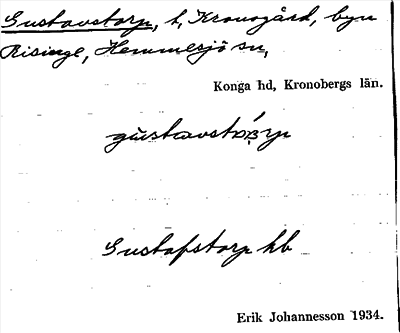 Gustavstorp, t, Kronogård, byn
Risinge, Hemmesjö sn,
Konga hd, Kronobergs län.
gustavstórp
Gustafstorp hb
Erik Johannesson 1934.